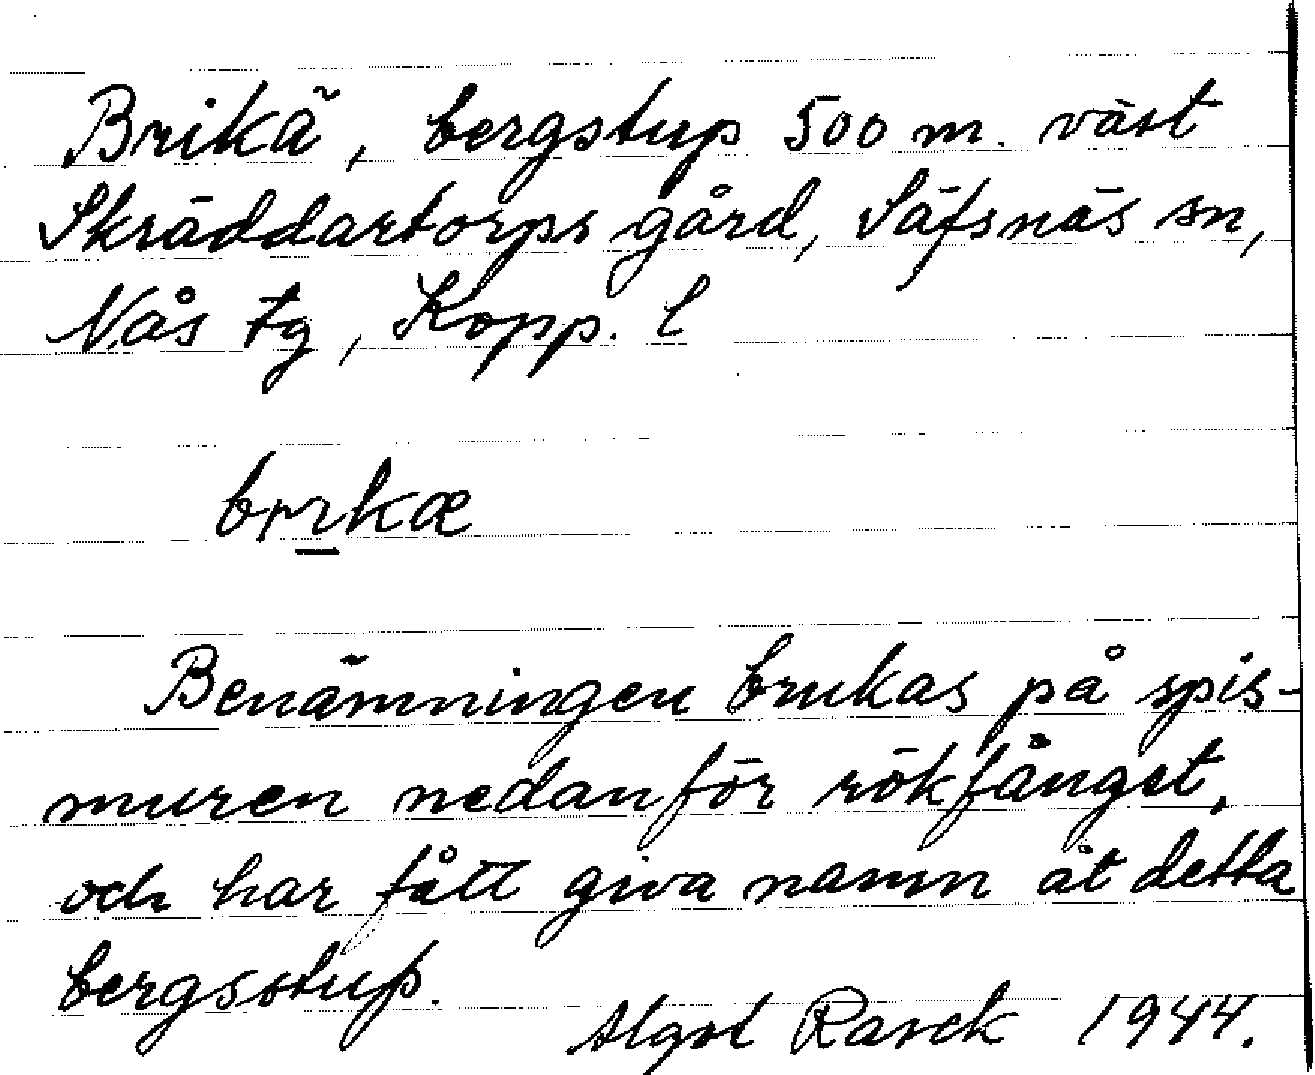 Brikä, bergstup 500 m. väst
Skräddartorps gård, Säfsnäs sn,
Nås tg, Kopp. l
brikæ
Benämningen brukas på spis-
muren nedanför rökfånget,
och har fått giva namn åt detta
bergsstup.
Algot Rasck 1944.